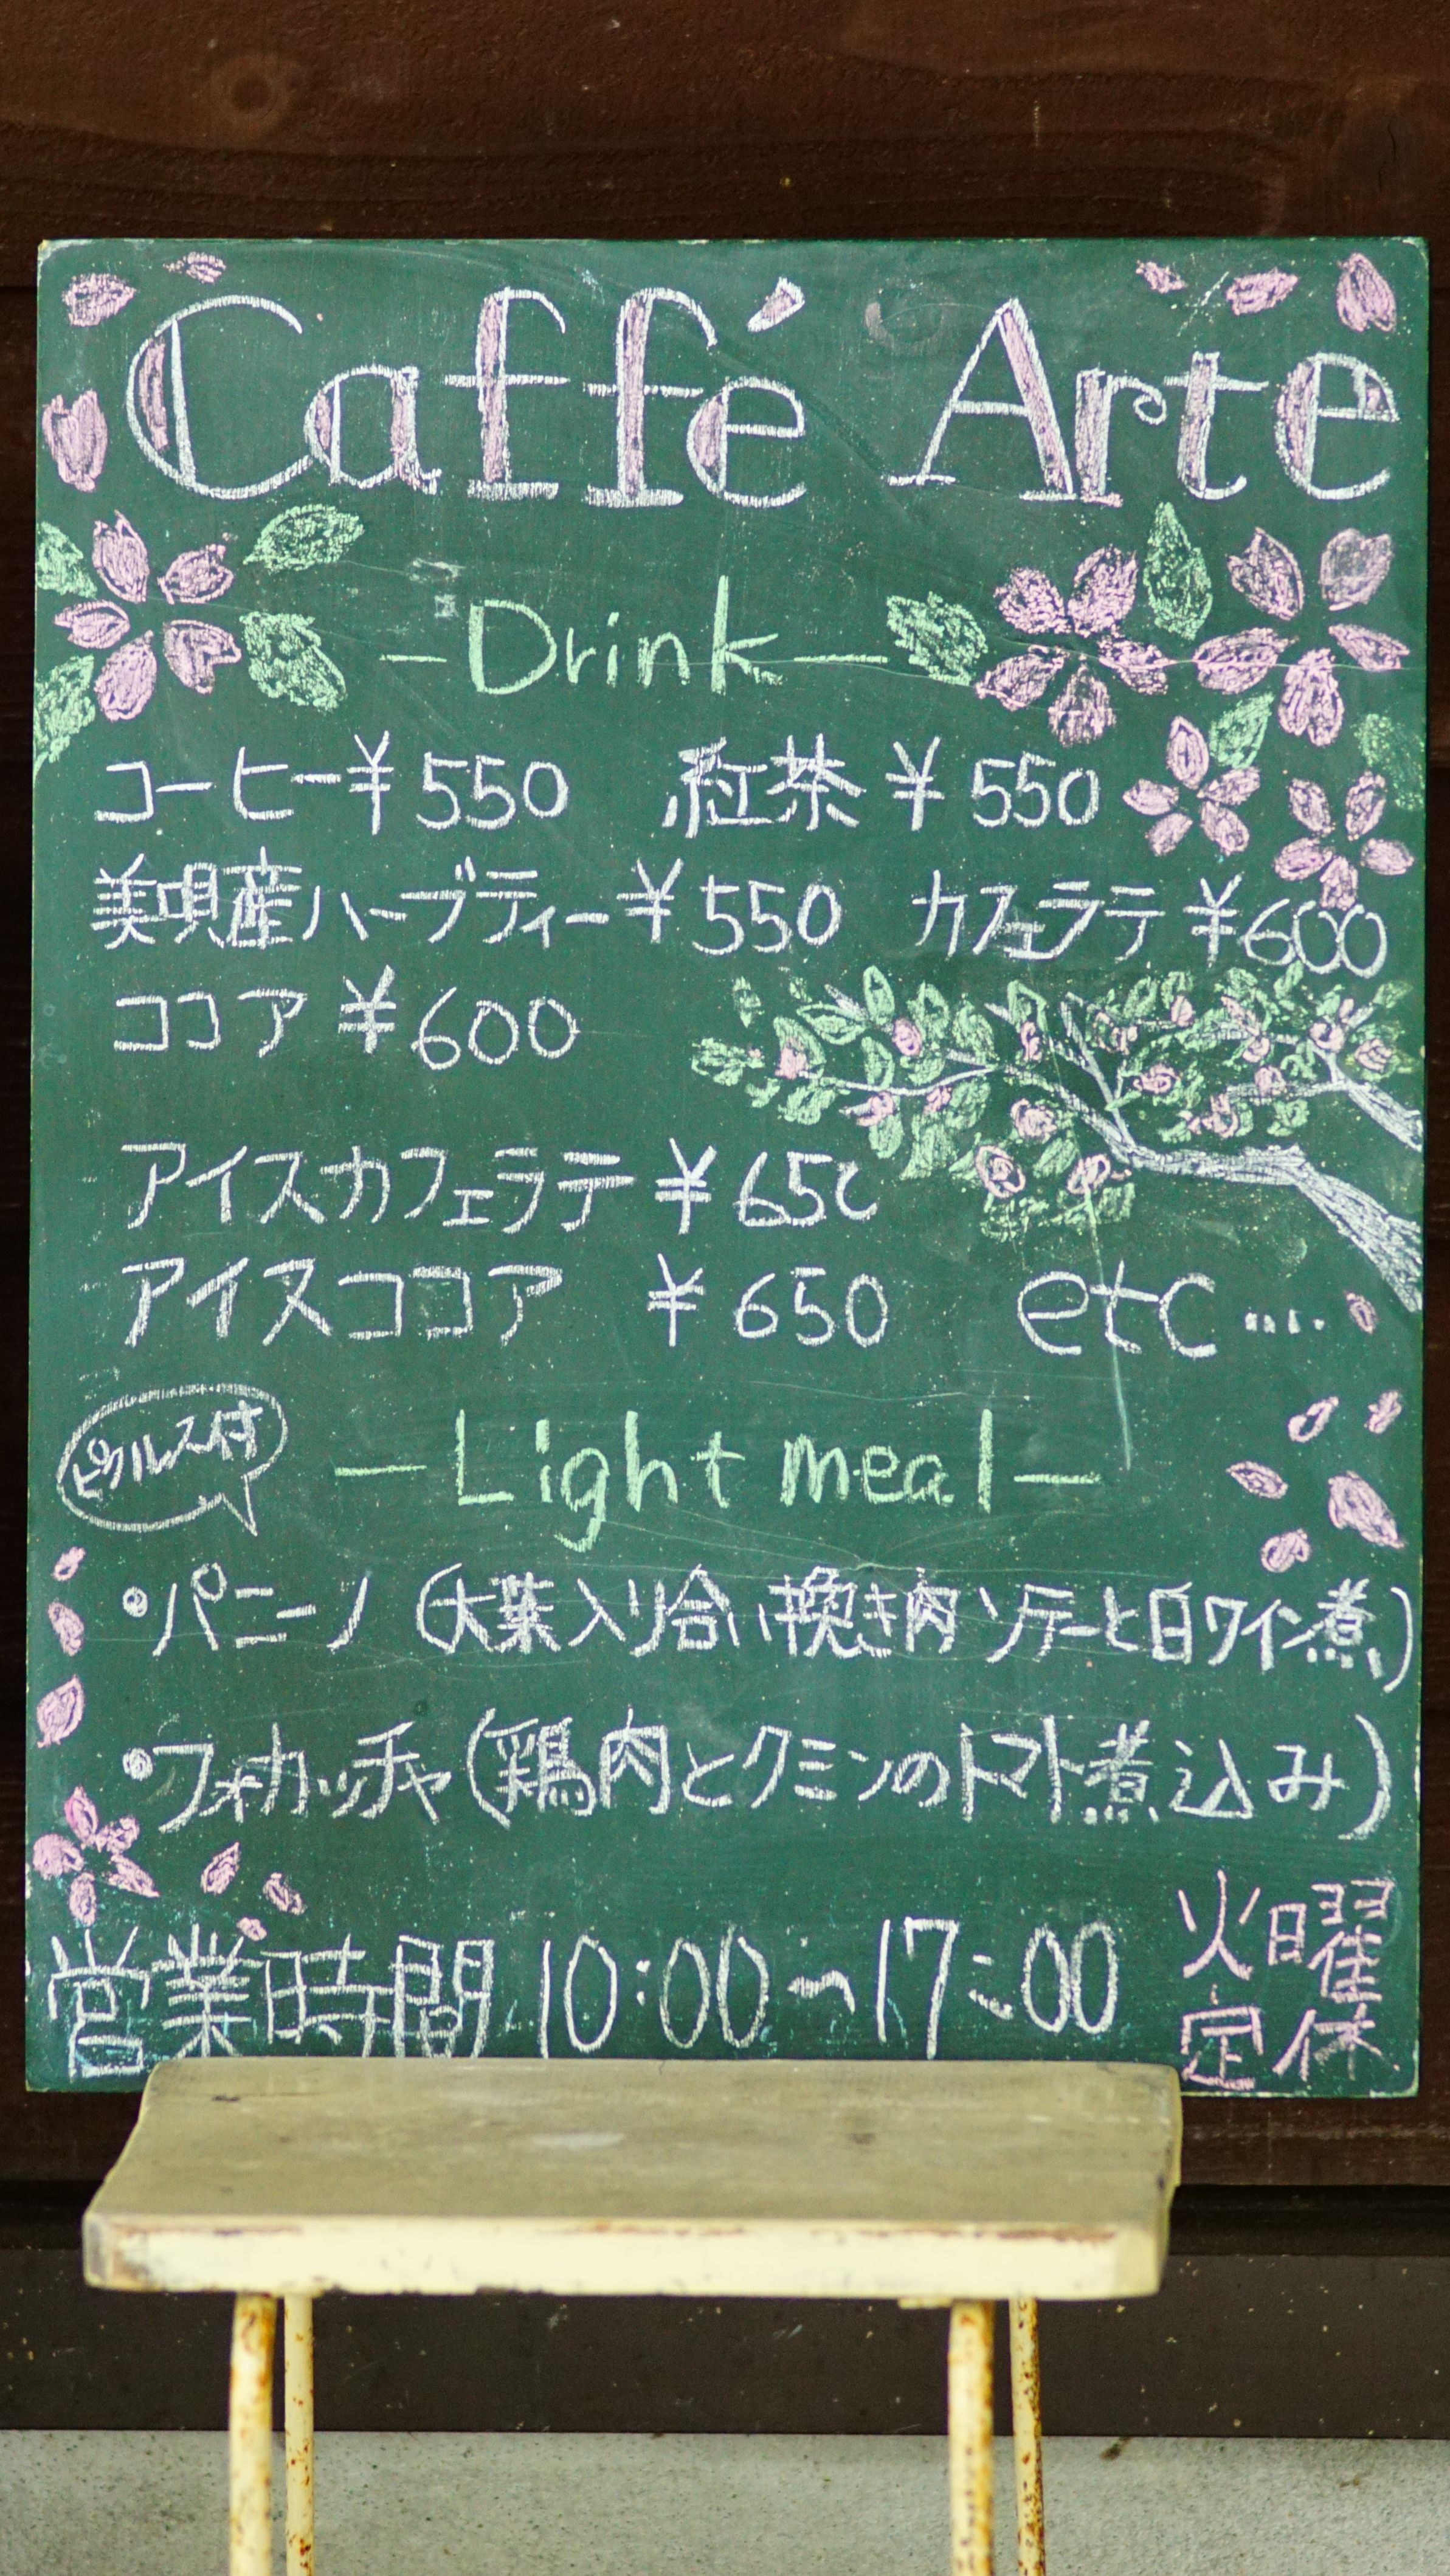 Caffé Arte
-Drink-
コーヒー ¥550 紅茶 ¥550
美唄産ハーブティー ¥550 カフェラテ ¥600
ココア ¥600
アイスカフェラテ ¥650
アイスココア ¥650 etc....
ピクルス付
-Light meal-
•パニーノ (大葉入り合い挽き肉ソテーと白ワイン煮)
•フォカッチャ (鶏肉とクミンのトマト煮込み)
営業時間 10:00~17:00
火曜
定休